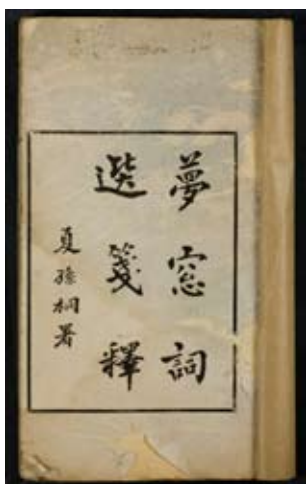 夢窓詞
選箋釋
夏孫桐署